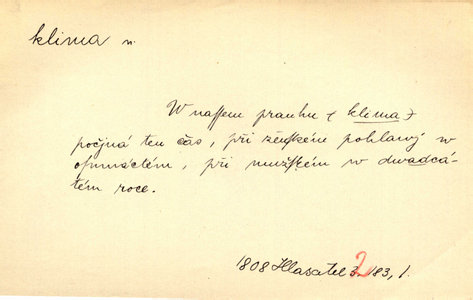 klima n.
W naſſem pranhu (klima)
počjná ten čas, při ženſkém pohlawj w
oſmnáctém, při mužſkém w dwadcá-
tém roce.
1808 Hlasatel 2 183, 1.